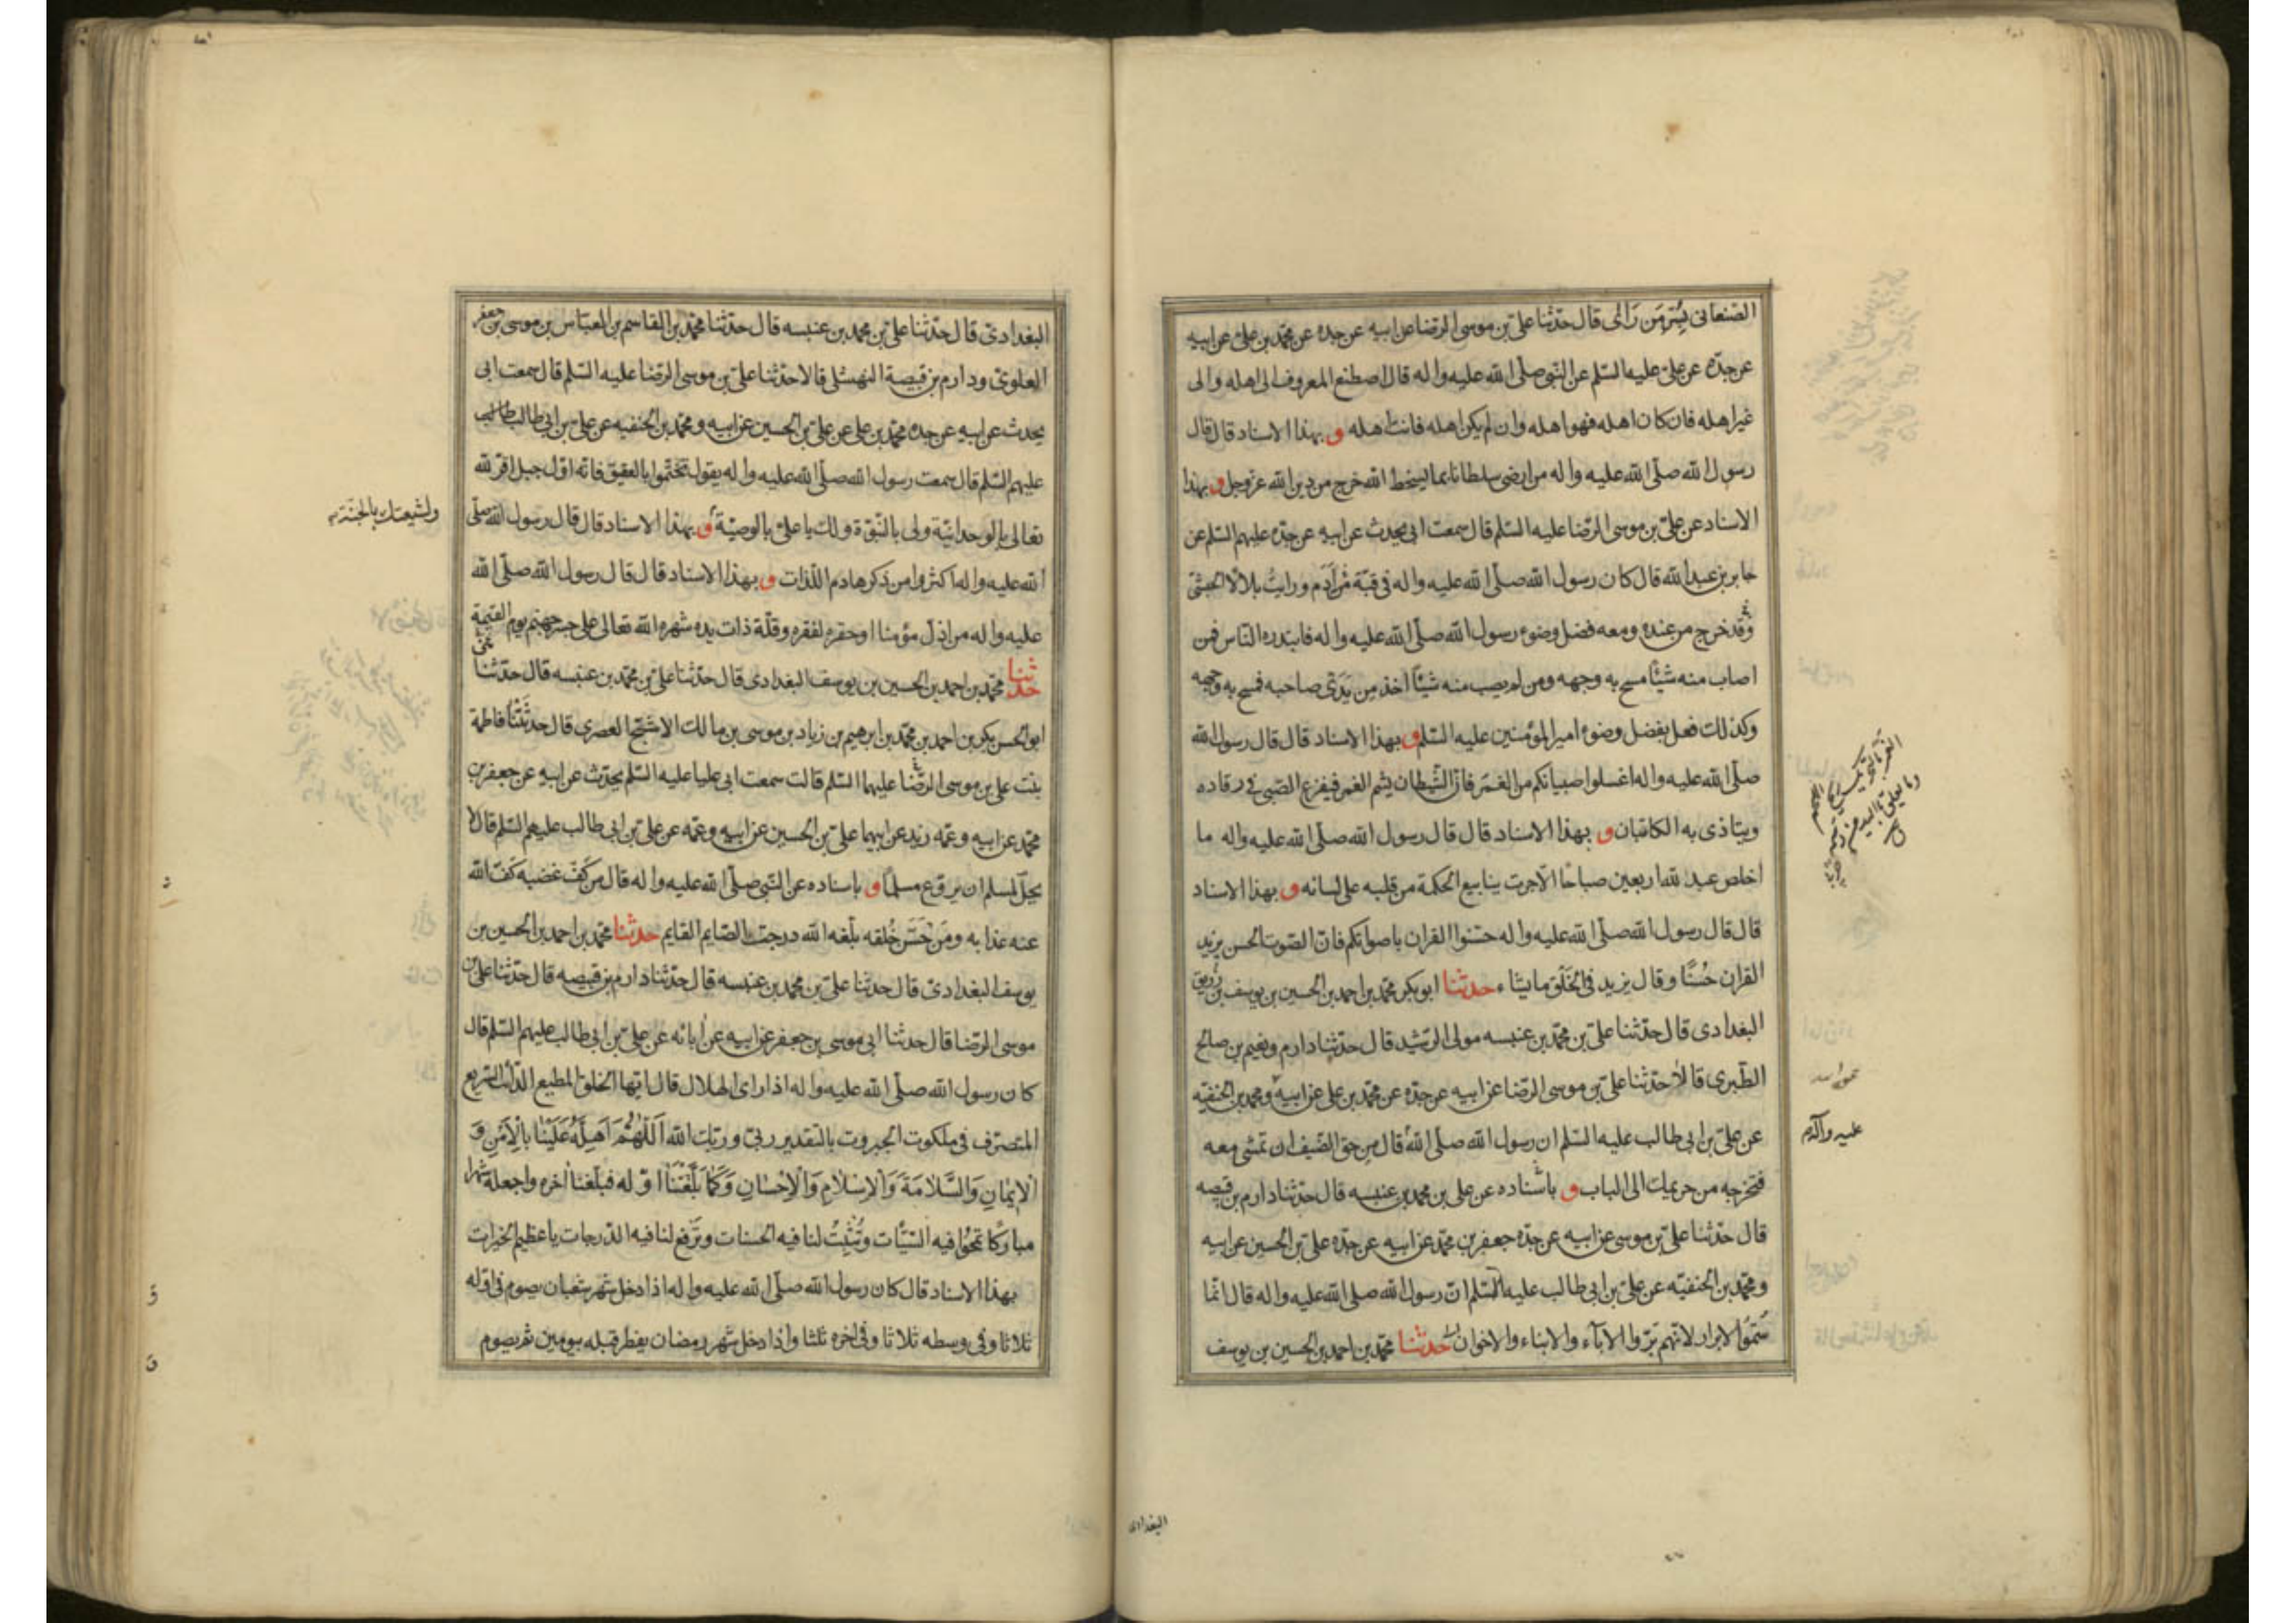 الصنعانى بسُرّ مَن رَاى قال حدّثنا علىّ بن موسى الرّضا عن ابيه عن جده عن محمّد بن علىّ عن ابيه
عن جدّه عن علىّ عليه السّلم عن النّبى صلّى الله عليه واله قال اصطنع المعروف الى اهله والى
غير اهله فان كان اهله فهو اهله وان لم يكن اهله فانت اهله و بهذا الاسناد قال قال
رسول الله صلّى الله عليه واله من ارضى سلطانا بما يسخط الله خرج من دين الله عزّ وجل و بهذا
الاسناد عن علىّ بن موسى الرّضا عليه السّلم قال سمعت ابى يحدث عن ابيه عن جدّه عليهم السّلم عن
جابر بن عبد الله قال كان رسول الله صلّى الله عليه واله فى قبّة من اَدَم ورايتُ بلالا الحبشىّ
وقد خرج من عنده ومعه فضل وضوء رسول الله صلّى الله عليه واله فابتدره النّاس فمن
اصاب منه شيئا مسح به وجهه ومن لم يصب منه شيئا اخذ من يَدَى صاحبه فمسح به وجهه
وكذلك فعل بفضل وضوء امير المؤمنين عليه السّلم و بهذا الاسناد قال قال رسول الله
صلّى الله عليه واله اغسلوا صبيانكم من الغمَر فان الشّيطان يشم الغمر فيفزع الصّبى فى رقاده
ويتاذى به الكاتبان و بهذا الاسناد قال قال رسول الله صلّى الله عليه واله ما
اخلص عبد لله اربعين صباحا الّا جرت ينابيع الحكمة من قلبه على لسانه و بهذا الاسناد
قال قال رسول الله صلّى الله عليه واله حسّنوا القران باصواتكم فانّ الصّوت الحسن يزيد
القران حُسنًا وقال يزيد فى الخَلق ما يشاء حدثنا ابو بكر محمّد بن احمد بن الحسين بن يوسف بن زريق
البغدادى قال حدّثنا علىّ بن محمّد بن عنبسه مولى الرّشيد قال حدّثنا دارم ونعيم بن صالح
الطّبرى قالا حدّثنا علىّ بن موسى الرّضا عن ابيه عن جدّه عن محمّد بن على عن ابيه ومحمد بن الحنفيّه
عن علىّ بن ابى طالب عليه السّلم ان رسول الله صلّى الله قال من حق الضّيف ان تمشى معه
فتخرجه من حريمك الى الباب و باسناده عن على بن محمد بن عنبسه قال حدّثنا دارم بن قبيصه
قال حدّثنا علىّ بن موسى عن ابيه عن جدّه جعفر بن محمّد عن ابيه عن جدّه علىّ بن الحسين عن ابيه
ومحمّد بن الحنفيّه عن علىّ بن ابى طالب عليه السّلم انّ رسول الله صلى الله عليه واله قال انّما
سُمّوا الابرار لانّهم برّوا الاباء والابناء والاخوان حدثنا محمّد بن احمد بن الحسين بن يوسف
عليه وآله
البغدادى
البغدادىّ قال حدّثنا علىّ بن محمد بن عنبسه قال حدّثنا محمّد بن القاسم بن العبّاس بن موسى بن جعفر
العلوىّ ودارم بن قبيصة النهشلى قالا حدّثنا علىّ بن موسى الرّضا عليه السّلم قال سمعت ابى
يحدث عن ابيه عن جده محمّد بن على عن علىّ بن الحسين عن ابيه ومحمّد بن الحنفيه عن علىّ بن ابى طالب
عليهم السّلم قال سمعت رسول الله صلّى الله عليه واله يقول تختّموا بالعقيق فانّه اوّل جبل اقرّ لله
تعالى بالوحدانيّة ولى بالنّبوّة ولك يا علىّ بالوصيّة و بهذا الاسناد قال قال رسول الله صلّى
ولشيعتك بالجنّة
الله عليه واله اكثروا من ذكر هادم اللّذات و بهذا الاسناد قال قال رسول الله صلّى الله
عليه واله من اذلّ مؤمنا او حقره لفقره وقلّة ذات يده شهره الله تعالى على جسر جهنّم يوم القيمة
حدثنا محمّد بن احمد بن الحسين بن يوسف البغدادى قال حدّثنا علىّ بن محمّد بن عنبسه قال حدّثنا
ابو الحسن بكر بن احمد بن محمّد بن ابرهيم بن زياد بن موسى بن مالك الاشجّ العصرى قال حدثَتنَا فاطمة
بنت على بن موسى الرّضا عليهما السّلم قالت سمعت ابى عليا عليه السّلم يحدّث عن ابيه عن جعفر بن
محمّد عن ابيه وعمّه زيد عن ابيهما علىّ بن الحسين عن ابيه وعمّه عن علىّ بن ابى طالب عليهم السّلم قال لا
يحلّ لمسلم ان يروّع مسلما و باسناده عن النّبى صلّى الله عليه واله قال من كَفّ غضبه كَفّ الله
عنه عذابه ومَن حَسَّن خُلقه بلّغه الله درجة الصّايم القايم حدثنا محمّد بن احمد بن الحسين بن
يوسف البغدادىّ قال حدثنا علىّ بن محمد بن عنبسه قال حدّثنا دارم بن قبيصه قال حدّثنا علىّ بن
موسى الرّضا قال حدثنا ابى موسى بن جعفر عن ابيه عن ابائه عن علىّ بن ابى طالب عليهم السّلم قال
كان رسول الله صلّى الله عليه واله اذا راى الهلال قال ايّها الخلق المطيع الدّائب السّريع
المتصرّف فى ملكوت الجبروت بالتقدير ربّى وربّك الله اَللّهُمَّ اَهِلَّهُ عَلَيْنَا بِالْاَمْنِ وَ
الْاِيمَانِ وَالسَّلَامَةِ وَالْاِسْلَامِ وَالْاِحْسَانِ وَكَمَا بَلَّغْتَنَا اوّله فبلّغنا اخره واجعله شهرا
مباركًا تمحُوا فيه السّيّئات وتُثبِتُ لنا فيه الحسنات وترفع لنا فيه الدّرجات يا عظيم الخيرات
بهذا الاسناد قال كان رسول الله صلّى الله عليه واله اذا دخل شهر شعبان يصوم فى اوّله
ثلاثا وفى وسطه ثلاثا وفى اخره ثلثا واذا دخل شهر رمضان يفطر قبله بيومين ثم يصوم